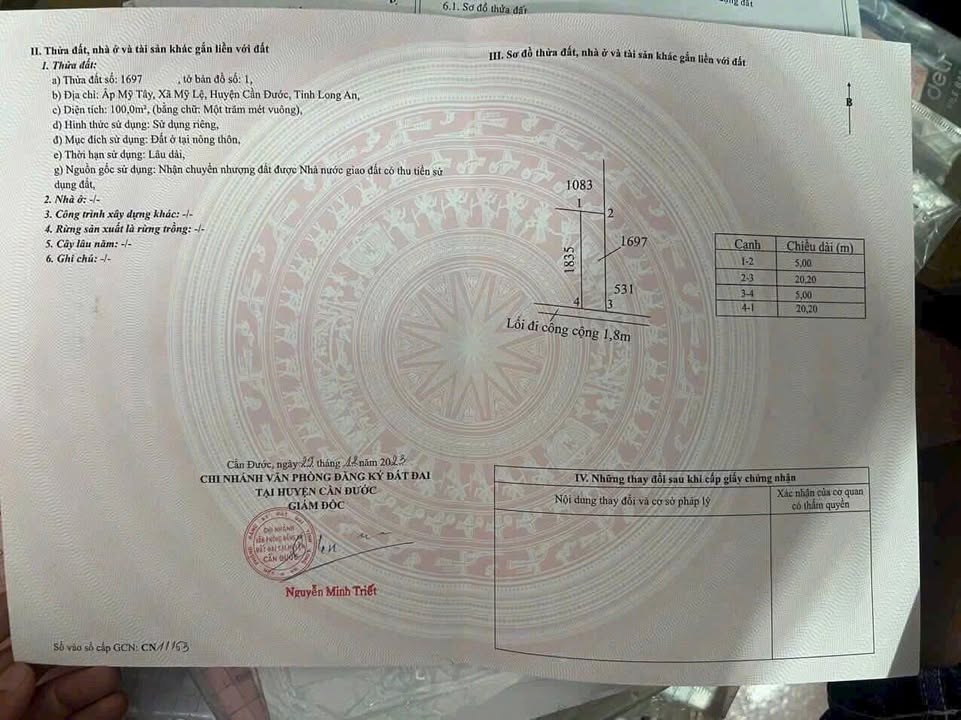 6.1. Sơ đồ thửa đất
II. Thửa đất, nhà ở và tài sản khác gắn liền với đất
1. Thửa đất:
a) Thửa đất số: 1697 , tờ bản đồ số: 1,
b) Địa chỉ: Ấp Mỹ Tây, Xã Mỹ Lệ, Huyện Cần Đước, Tỉnh Long An,
c) Diện tích: 100,0m², (bằng chữ: Một trăm mét vuông),
d) Hình thức sử dụng: Sử dụng riêng,
đ) Mục đích sử dụng: Đất ở tại nông thôn,
e) Thời hạn sử dụng: Lâu dài,
g) Nguồn gốc sử dụng: Nhận chuyển nhượng đất được Nhà nước giao đất có thu tiền sử
dụng đất,
2. Nhà ở: -/-
3. Công trình xây dựng khác: -/-
4. Rừng sản xuất là rừng trồng: -/-
5. Cây lâu năm: -/-
6. Ghi chú: -/-
Cần Đước, ngày 22 tháng 12 năm 2023
CHI NHÁNH VĂN PHÒNG ĐĂNG KÝ ĐẤT ĐAI
TẠI HUYỆN CẦN ĐƯỚC
GIÁM ĐỐC
CHI NHÁNH
VĂN PHÒNG ĐĂNG KÝ
ĐẤT ĐAI TẠI HUYỆN
CẦN ĐƯỚC
Nguyễn Minh Triết
Số vào sổ cấp GCN: CN11153
III. Sơ đồ thửa đất, nhà ở và tài sản khác gắn liền với đất
B
1083
1
2
1697
1835
531
4
3
Lối đi công cộng 1,8m
Cạnh Chiều dài (m)
1-2 5,00
2-3 20,20
3-4 5,00
4-1 20,20
IV. Những thay đổi sau khi cấp giấy chứng nhận
Nội dung thay đổi và cơ sở pháp lý
Xác nhận của cơ quan
có thẩm quyền
deli